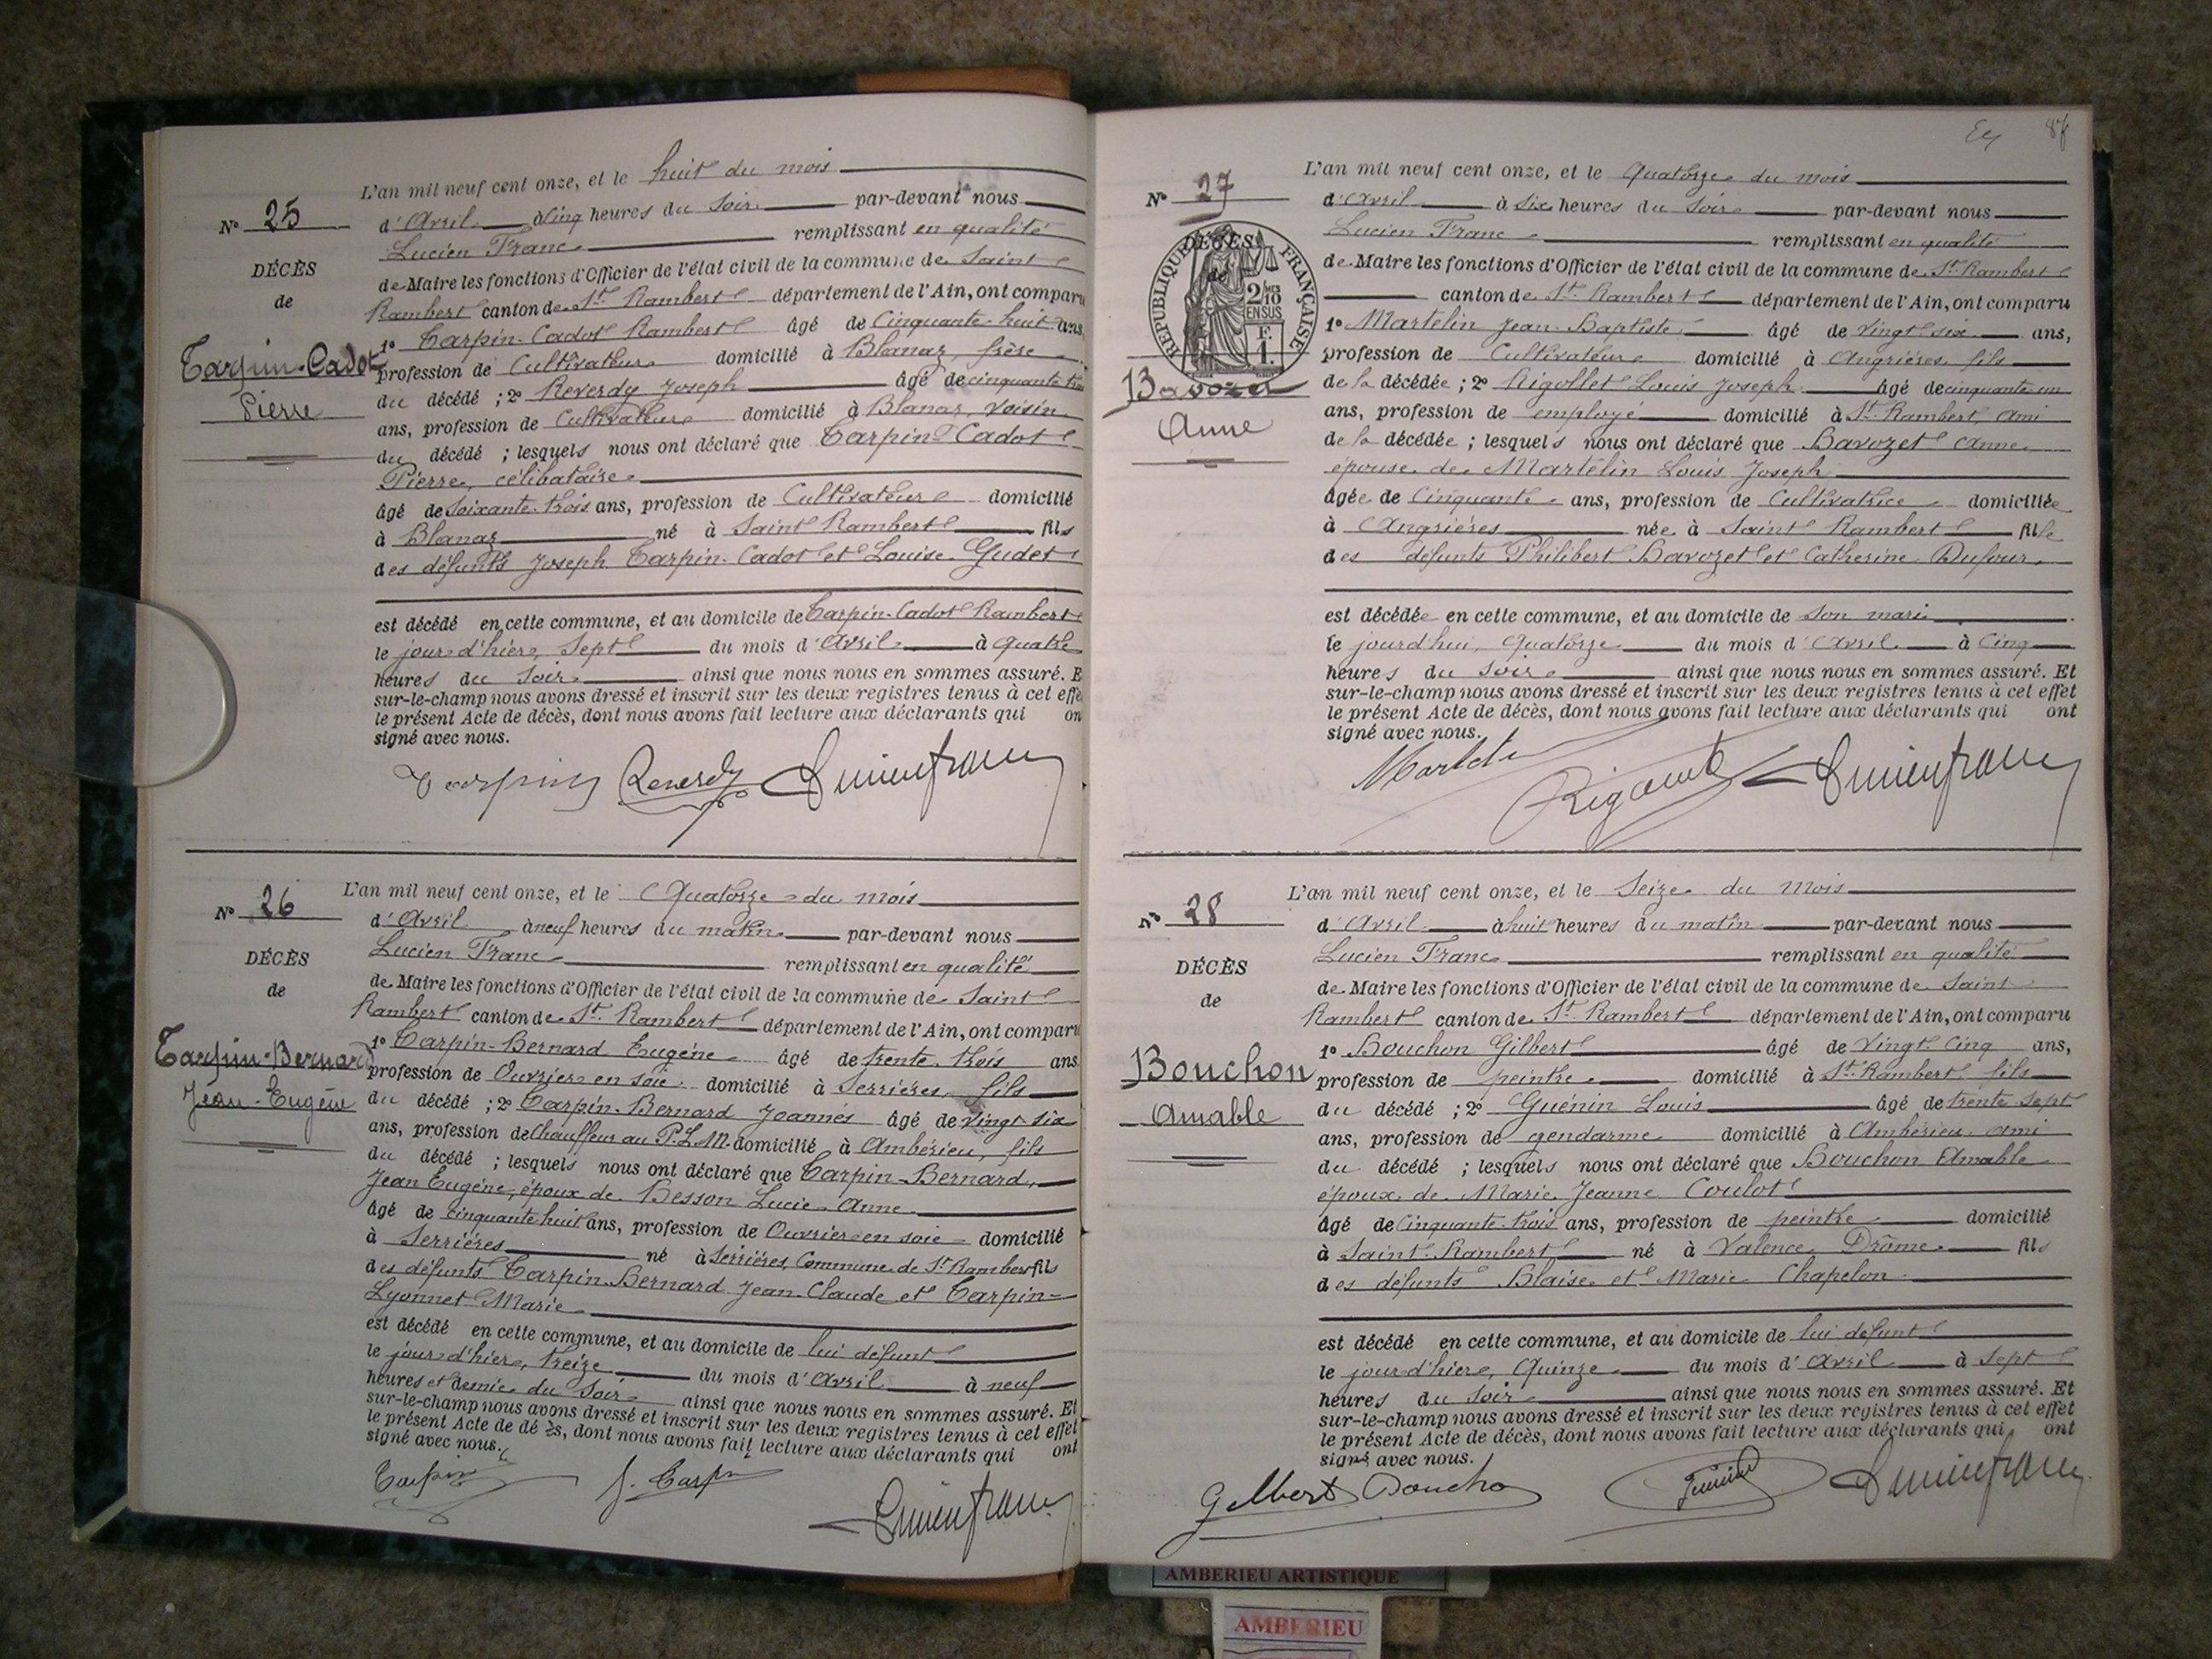 N° 25
DÉCÈS
de
Tarpin-Cadot
Pierre
L'an mil neuf cent onze, et le huit du mois
d'Avril à Cinq heures du soir par-devant nous
Lucien Franc remplissant en qualité
de Maire les fonctions d'Officier de l'état civil de la commune de Saint
Rambert canton de St. Rambert département de l'Ain, ont comparu
1° Tarpin-Cadot Rambert âgé de Cinquante-huit ans,
profession de Cultivateur domicilié à Blanaz, frère
du décédé ; 2° Reverdy Joseph âgé de cinquante trois
ans, profession de Cultivateur domicilié à Blanaz, voisin
du décédé ; lesquels nous ont déclaré que Tarpin-Cadot
Pierre, célibataire
âgé de Soixante-trois ans, profession de Cultivateur domicilié
à Blanaz né à Saint Rambert fils
des défunts Joseph Tarpin-Cadot et Louise Gudet
est décédé en cette commune, et au domicile de Tarpin-Cadot Rambert
le jour d'hier, Sept du mois d'Avril à quatre
heures du soir ainsi que nous nous en sommes assuré. E
sur-le-champ nous avons dressé et inscrit sur les deux registres tenus à cet effe
le présent Acte de décès, dont nous avons fait lecture aux déclarants qui on
signé avec nous.
Tarpin Reverdy Lucien franc
N° 26
DÉCÈS
de
Tarpin-Bernard
Jean-Eugène
L'an mil neuf cent onze, et le Quatorze du mois
d'Avril à neuf heures du matin par-devant nous
Lucien Franc remplissant en qualité
de Maire les fonctions d'Officier de l'état civil de la commune de Saint
Rambert canton de St. Rambert département de l'Ain, ont comparu
1° Tarpin-Bernard Eugène âgé de trente-trois ans
profession de Ouvrier en soie domicilié à Serrières, fils
du décédé ; 2° Tarpin-Bernard Joannès âgé de vingt six
ans, profession de Chauffeur au P.L.M. domicilié à Ambérieu, fils
du décédé ; lesquels nous ont déclaré que Tarpin-Bernard,
Jean Eugène, époux de Besson Lucie-Anne
âgé de cinquante huit ans, profession de Ouvrier en soie domicilié
à Serrières né à Serrières, Commune de St Rambert fils
des défunts Tarpin-Bernard Jean-Claude et Tarpin-
Lyonnet Marie
est décédé en cette commune, et au domicile de lui défunt
le jour d'hier, treize du mois d'Avril à neuf
heures et demie du soir ainsi que nous nous en sommes assuré. Et
sur-le-champ nous avons dressé et inscrit sur les deux registres tenus à cet effet
le présent Acte de décès, dont nous avons fait lecture aux déclarants qui ont
signé avec nous.
Tarpin J. Tarpin
Lucien franc
87
N° 27
DÉCÈS
de
RÉPUBLIQUE FRANÇAISE
2/10 EN SUS
F. 1.
Bavozet
Anne
L'an mil neuf cent onze, et le Quatorze du mois
d'Avril à Six heures du Soir par-devant nous
Lucien Franc remplissant en qualité
de Maire les fonctions d'Officier de l'état civil de la commune de St. Rambert
canton de St. Rambert département de l'Ain, ont comparu
1° Martelin Jean-Baptiste âgé de vingt six ans,
profession de Cultivateur domicilié à Angrières, fils
de la décédée ; 2° Rigollet Louis Joseph âgé de cinquante un
ans, profession de employé domicilié à St. Rambert, ami
de la décédée ; lesquels nous ont déclaré que Bavozet Anne,
épouse de Martelin Louis Joseph
âgée de Cinquante ans, profession de Cultivatrice domiciliée
à Angrières née à Saint Rambert fille
des défunts Philibert Bavozet et Catherine Dufour,
est décédée en cette commune, et au domicile de son mari
le jourd'hui, Quatorze du mois d'Avril à Cinq
heures du soir ainsi que nous nous en sommes assuré. Et
sur-le-champ nous avons dressé et inscrit sur les deux registres tenus à cet effet
le présent Acte de décès, dont nous avons fait lecture aux déclarants qui ont
signé avec nous.
Lucien franc
N° 28
DÉCÈS
de
Bouchon
Amable
L'an mil neuf cent onze, et le Seize du Mois
d'Avril à huit heures du matin par-devant nous
Lucien Franc remplissant en qualité
de Maire les fonctions d'Officier de l'état civil de la commune de Saint
Rambert canton de St. Rambert département de l'Ain, ont comparu
1° Bouchon Gilbert âgé de Vingt-Cinq ans,
profession de peintre domicilié à St. Rambert, fils
du décédé ; 2° Guénin Louis âgé de trente-sept
ans, profession de gendarme domicilié à Ambérieu, ami
du décédé ; lesquels nous ont déclaré que Bouchon Amable
époux de Marie Jeanne Coulot
âgé de Cinquante-trois ans, profession de peintre domicilié
à Saint-Rambert né à Valence, Drôme fils
des défunts Blaise et Marie Chapelon
est décédé en cette commune, et au domicile de lui défunt
le jour d'hier, Quinze du mois d'Avril à Sept
heures du soir ainsi que nous nous en sommes assuré. Et
sur-le-champ nous avons dressé et inscrit sur les deux registres tenus à cet effet
le présent Acte de décès, dont nous avons fait lecture aux déclarants qui ont
signé avec nous.
Gilbert Bouchon Lucien franc
AMBERIEU ARTISTIQUE
AMBERIEU